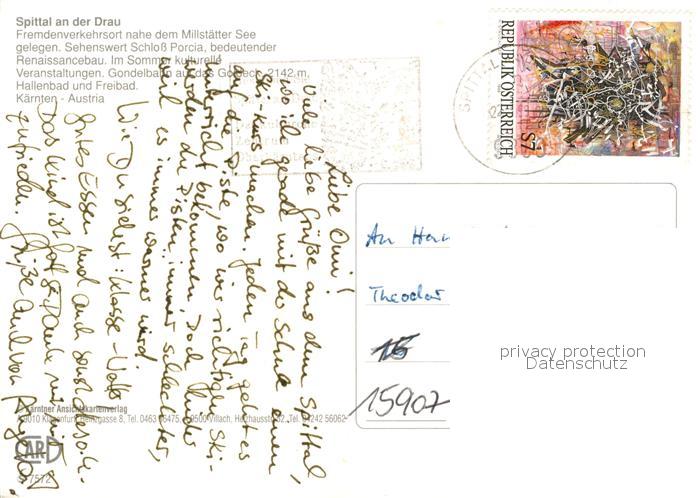 Spittal an der Drau
Fremdenverkehrsort nahe dem Millstätter See
gelegen. Sehenswert Schloß Porcia, bedeutender
Renaissancebau. Im Sommer kulturelle
Veranstaltungen. Gondelbahn auf das 2142 m,
Hallenbad und Freibad.
Kärnten - Austria
REPUBLIK ÖSTERREICH S7
SPITTAL
Liebe Omi!
Viele liebe Grüße aus dem Spittal,
wo ich gerade mit der Schule einen
Ski-kurs machen. Jeden Tag geht es
auf die Piste, wo wir richtigen Ski-
unterricht bekommen. Doch
werden die Pisten immer schlechter,
weil es immer wärmer wird.
Wie Du siehst: klasse
gutes Essen und auch sonst
Das Kind ist Gott sei Danke mit
zufrieden. Grüße auch von
An Herrn
Theodor
15
15907
privacy protection
Datenschutz
Kärntner Ansichtkartenverlag
9010 Klagenfurt, 8, Tel. 0463 9500 Villach, 32, Tel. 04242 56062
CARD
S 7572